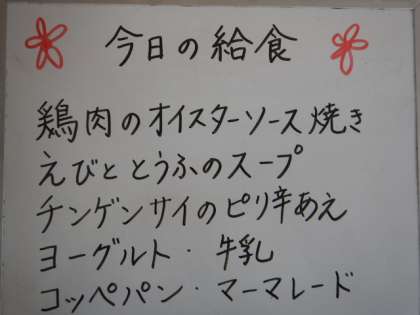 今日の給食
鶏肉のオイスターソース焼き
えびととうふのスープ
チンゲンサイのピリ辛あえ
ヨーグルト・牛乳
コッペパン・マーマレード